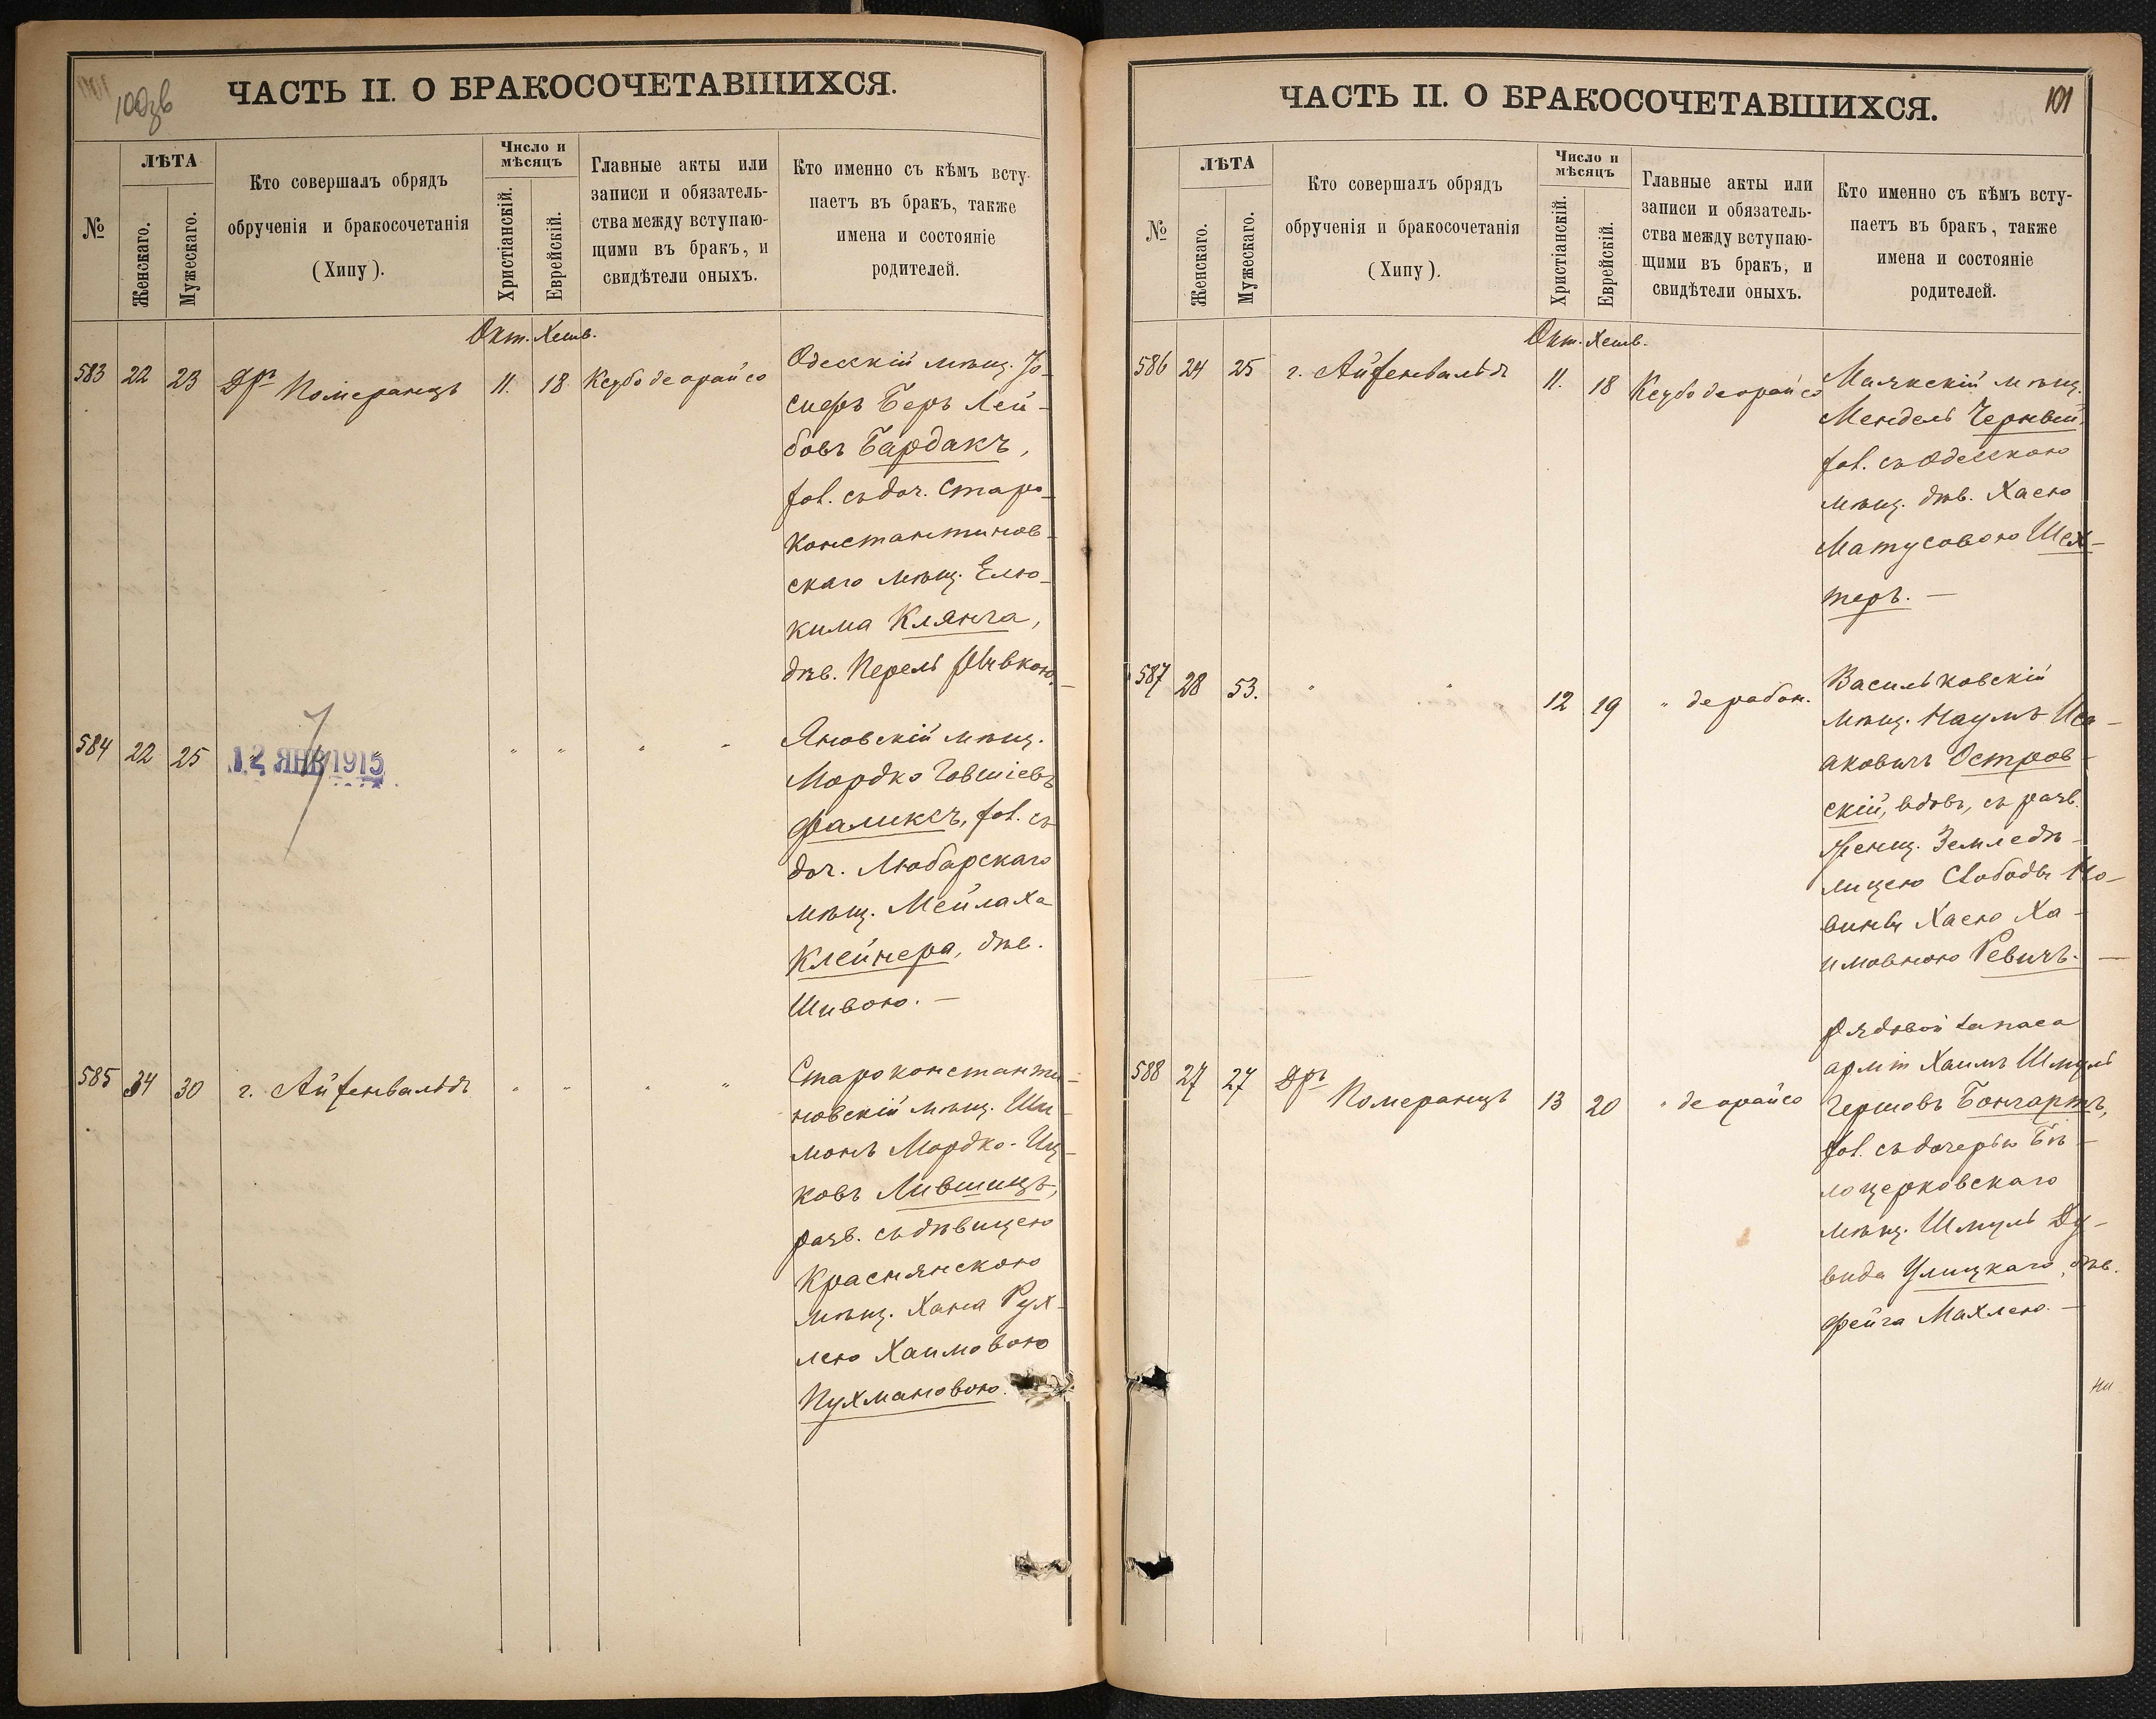 100 об
ЧАСТЬ II. О БРАКОСОЧЕТАВШИХСЯ.
№
ЛѢТА
Женскаго.
Мужескаго.
Кто совершалъ обрядъ
обрученія и бракосочетанія
(Хипу).
Число и
мѣсяцъ
Христіанскій.
Еврейскій.
Главные акты или
записи и обязатель-
ства между вступаю-
щими въ бракъ, и
свидѣтели оныхъ.
Кто именно съ кѣмъ всту-
паетъ въ бракъ, также
имена и состояніе
родителей.
Окт. Хешв.
583 22 23 Дръ Померанцъ 11. 18 Ксубо деорайсо
Одесскій мѣщ. Іо-
сифъ Беръ Лей-
бовъ Бардакъ,
хол. съ доч. Старо-
константинов-
скаго мѣщ. Елю-
кима Клянча,
дѣв. Перель Рывкою.
584 22 25 " " " "
12 ЯНВ 1915
Яновскій мѣщ.
Мордко Іовшіевъ
Фаликсъ, хол. съ
доч. Любарскаго
мѣщ. Мейлаха
Клейнера, дѣв.
Шивою. —
585 34 30 г. Айзенвальдъ " " " "
Староконстанти-
новскій мѣщ. Ши-
монъ Мордко-Иц-
ковъ Лившицъ,
разв. съ дѣвицею
Краснянскою
мѣщ. Хана Рух-
лею Хаимовою
Пухмановою.
101
ЧАСТЬ II. О БРАКОСОЧЕТАВШИХСЯ.
№
ЛѢТА
Женскаго.
Мужескаго.
Кто совершалъ обрядъ
обрученія и бракосочетанія
(Хипу).
Число и
мѣсяцъ
Христіанскій.
Еврейскій.
Главные акты или
записи и обязатель-
ства между вступаю-
щими въ бракъ, и
свидѣтели оныхъ.
Кто именно съ кѣмъ всту-
паетъ въ бракъ, также
имена и состояніе
родителей.
Окт. Хешв.
586 24 25 г. Айзенвальдъ 11. 18 Ксубо деорайсо
Маякскій мѣщ.
Мендель Черный,
хол. съ Одесскою
мѣщ. дѣв. Хаею
Матусовою Шех-
теръ. —
587 28 53. " " 12 19 " дерабон.
Васильковскій
мѣщ. Наумъ Иса-
аковичъ Остров-
скій, вдовъ, съ разв.
женщ. Земледѣ-
лицею Свободы Но-
вины Хаею Ха-
имовною Ревичъ. —
588 27 27 Дръ Померанцъ 13 20 " деорайсо
Рядовой запаса
арміи Хаимъ Шмуль
Гершовъ Бончартъ,
хол. съ дочерью Бѣ-
лоцерковскаго
мѣщ. Шмуль Ду-
вида Улицкаго, дѣв.
Фейга Махлею. —